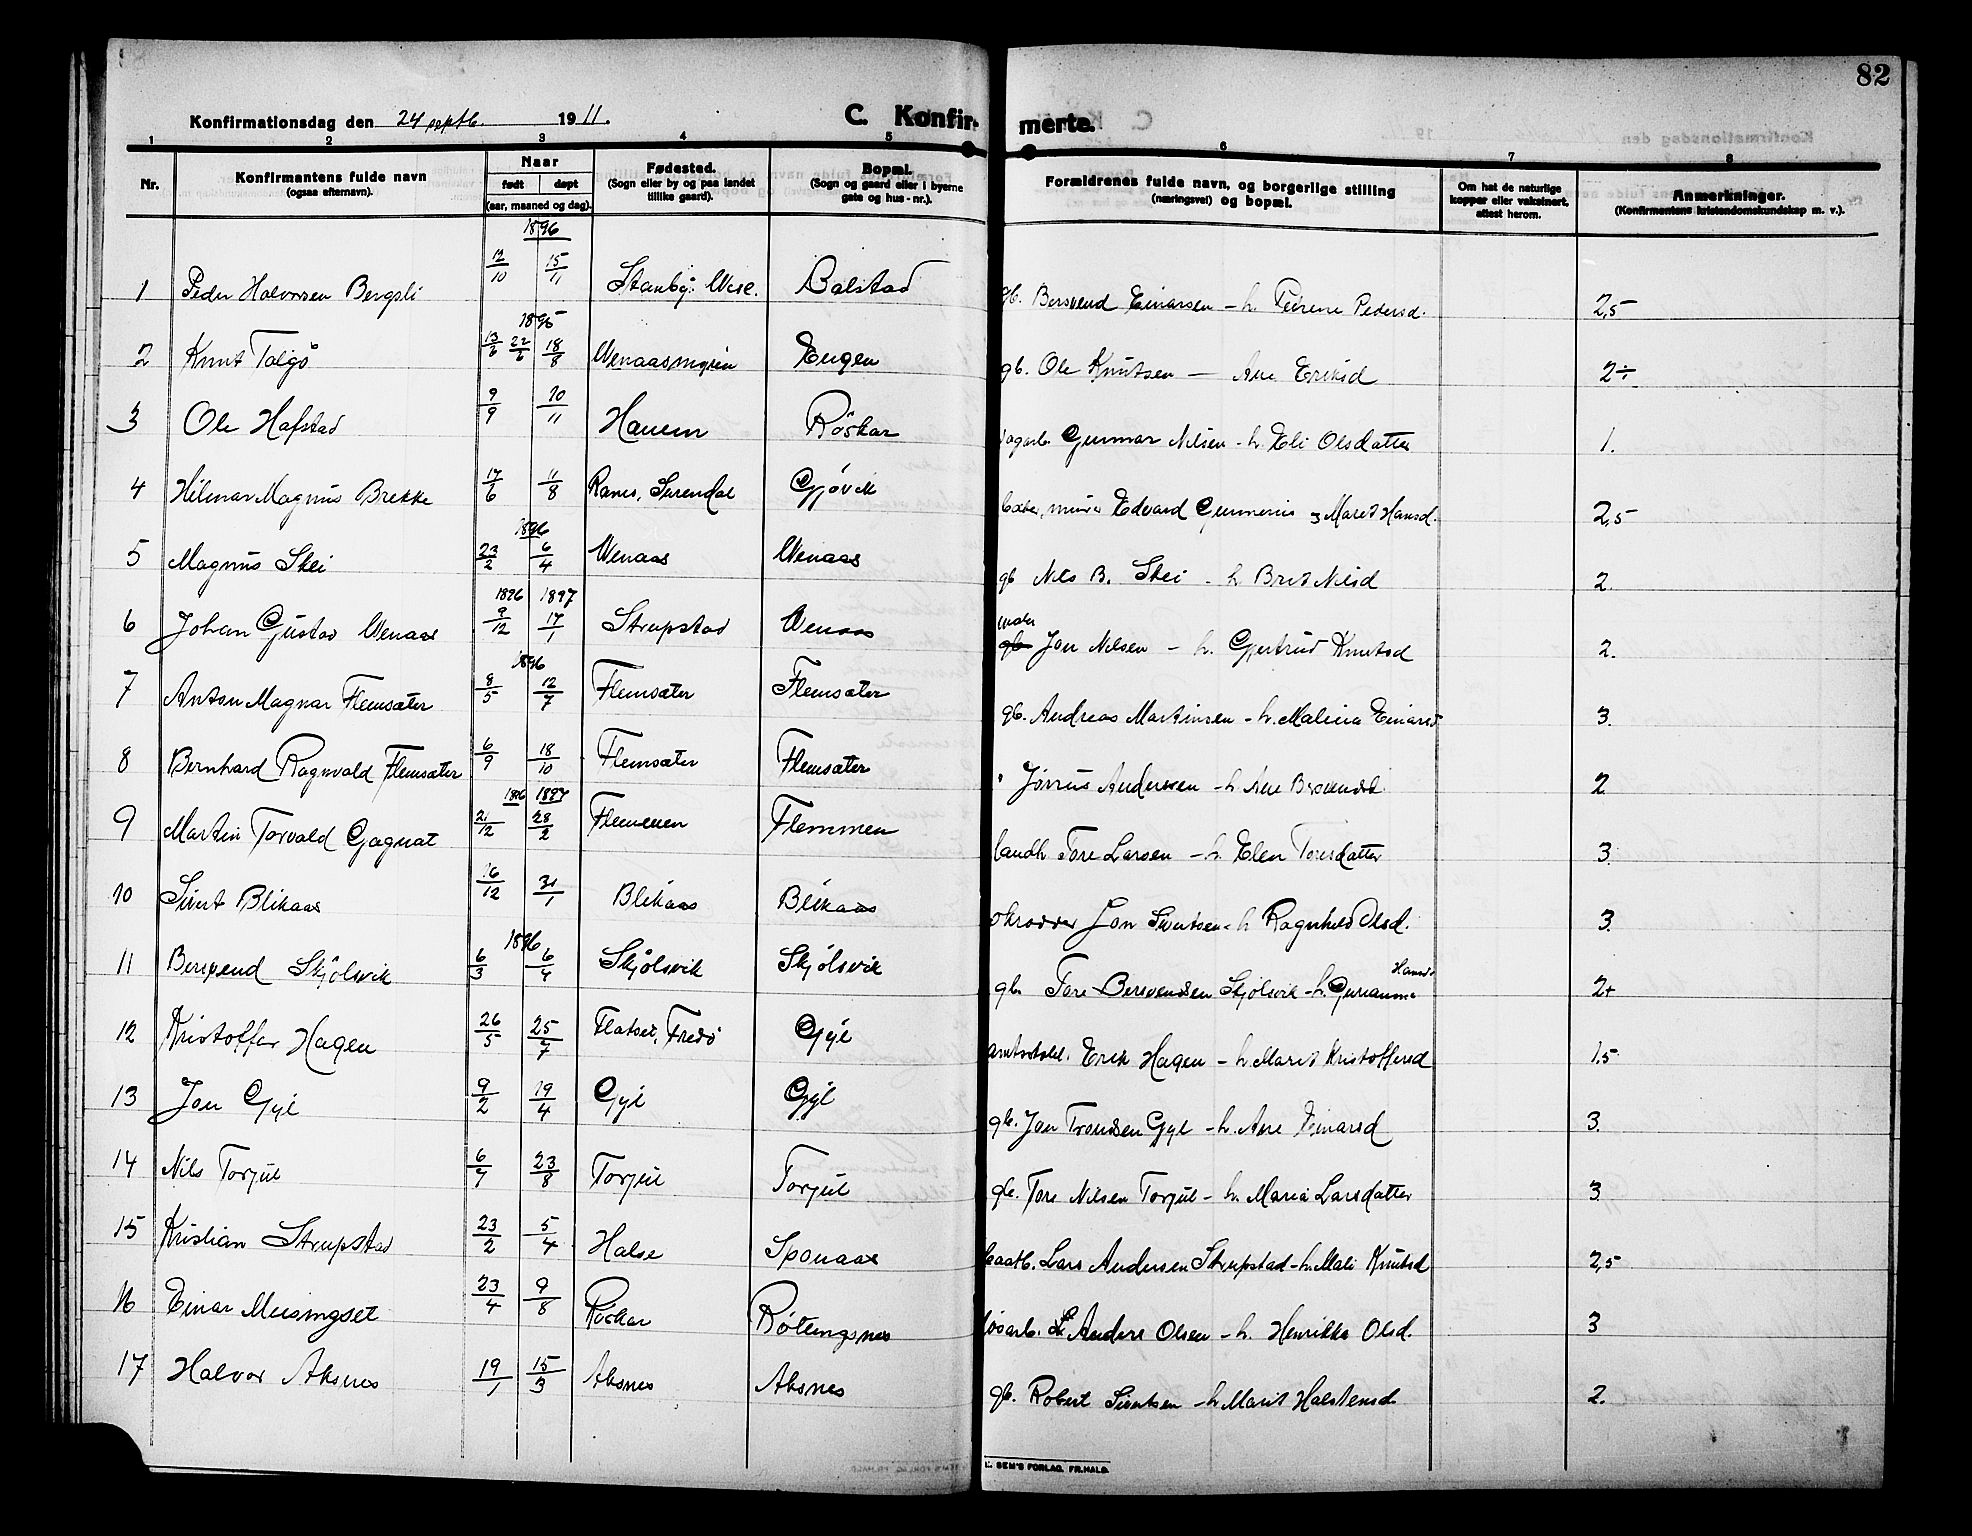 82
Konfirmationsdag den 24 septb. 1911. C. Konfir- merte.
1 2 3 4 5 6 7 8
Nr. Konfirmantens fulde navn (ogsaa efternavn). Naar født døpt (aar, maaned og dag). Fødested. (Sogn eller by og paa landet tillike gaard). Bopæl. (Sogn og gaard eller i byerne gate og hus-nr.). Forældrenes fulde navn, og borgerlige stilling (næringsvei) og bopæl. Om hat de naturlige kopper eller vaksinert, attest herom. Anmerkninger. (Konfirmantens kristendomskundskap m. v.).
1896
1 Peder Halvorsen Bergsli 12/10 15/11 Balstad gb. Bersvend Einarsen - h. Petrene Pedersd. 2,5
1895
2 Knut Talgø 13/6 22/6 18/8 Wenaasmyrin Engen gb. Ole Knutsen — Ane Eriksd 2÷
3 Ole Hafstad 9/9 10/11 Hanem Röskar Gunnar Nilsen - h. Eli Olsdatter 1.
4 Hilmar Magnus Brekke 17/6 11/8 Ranes, Surendal Gjøvik murer Edvard Gunnerius Marit Hansd. 2,5
1896
5 Magnus Skei 23/2 6/4 Wenaas Wenaas gb Nils B. Skei - h Brit Nilsd 2.
1896 1897
6 Johan Gustav Wenaas 9/12 17/1 Strupstad Venaas gb Jon Nilsen - h. Gjertrud Knutsd 2.
1896
7 Anton Magnar Flemsæter 8/5 12/7 Flemsæter Flemsæter gb. Andreas Martinsen - h. Malina Einarsd 3.
8 Bernhard Ragnvald Flemsæter 6/9 18/10 Flemsæter Flemsæter " Andersen - h. Ane 2
1896 1897
9 Martin Torvald Gagnat 21/12 28/2 Flemmen Flemmen landh Tore Larsen - h. Elen Toresdatter 3.
10 Sivert Blikaas 16/12 31/1 Blikaas Blikaas skrædder Jon Sivertsen - h Ragnhild Olsd. 3.
1896
11 Bersvend Skjølsvik 6/3 6/4 Skjølsvik Skjølsvik gb. Tore Bersvendsen Skjølsvik - h. Gurianna Hansd 2+
12 Kristoffer Hagen 26/5 25/7 Flatset, Fredö Gyl Erik Hagen - h. Marit Kristoffersd 1.5
13 Jon Gyl 9/2 19/4 Gyl Gyl gb. Jon Trondsen Gyl - h. Ane Einarsd 3.
14 Nils Torjul 6/7 23/8 Torjul Torjul gb. Tore Nilsen Torjul - h. Maria Larsdatter 3
15 Kristian Strupstad 23/2 5/4 Halse Sponaas Lars Andersen Strupstad - h. Mali Knutsd 2,5
16 Einar Meisingset 23/4 9/8 Röskar Røttingsnes løsarb. Anders Olsen - h. Henrikke Olsd. 3
17 Halvor Aksnes 19/1 15/3 Aksnes Aksnes gb. Robert Sivertsen - h Marit Halstensd. 2.
SEM'S FORLAG, FR.HALD.